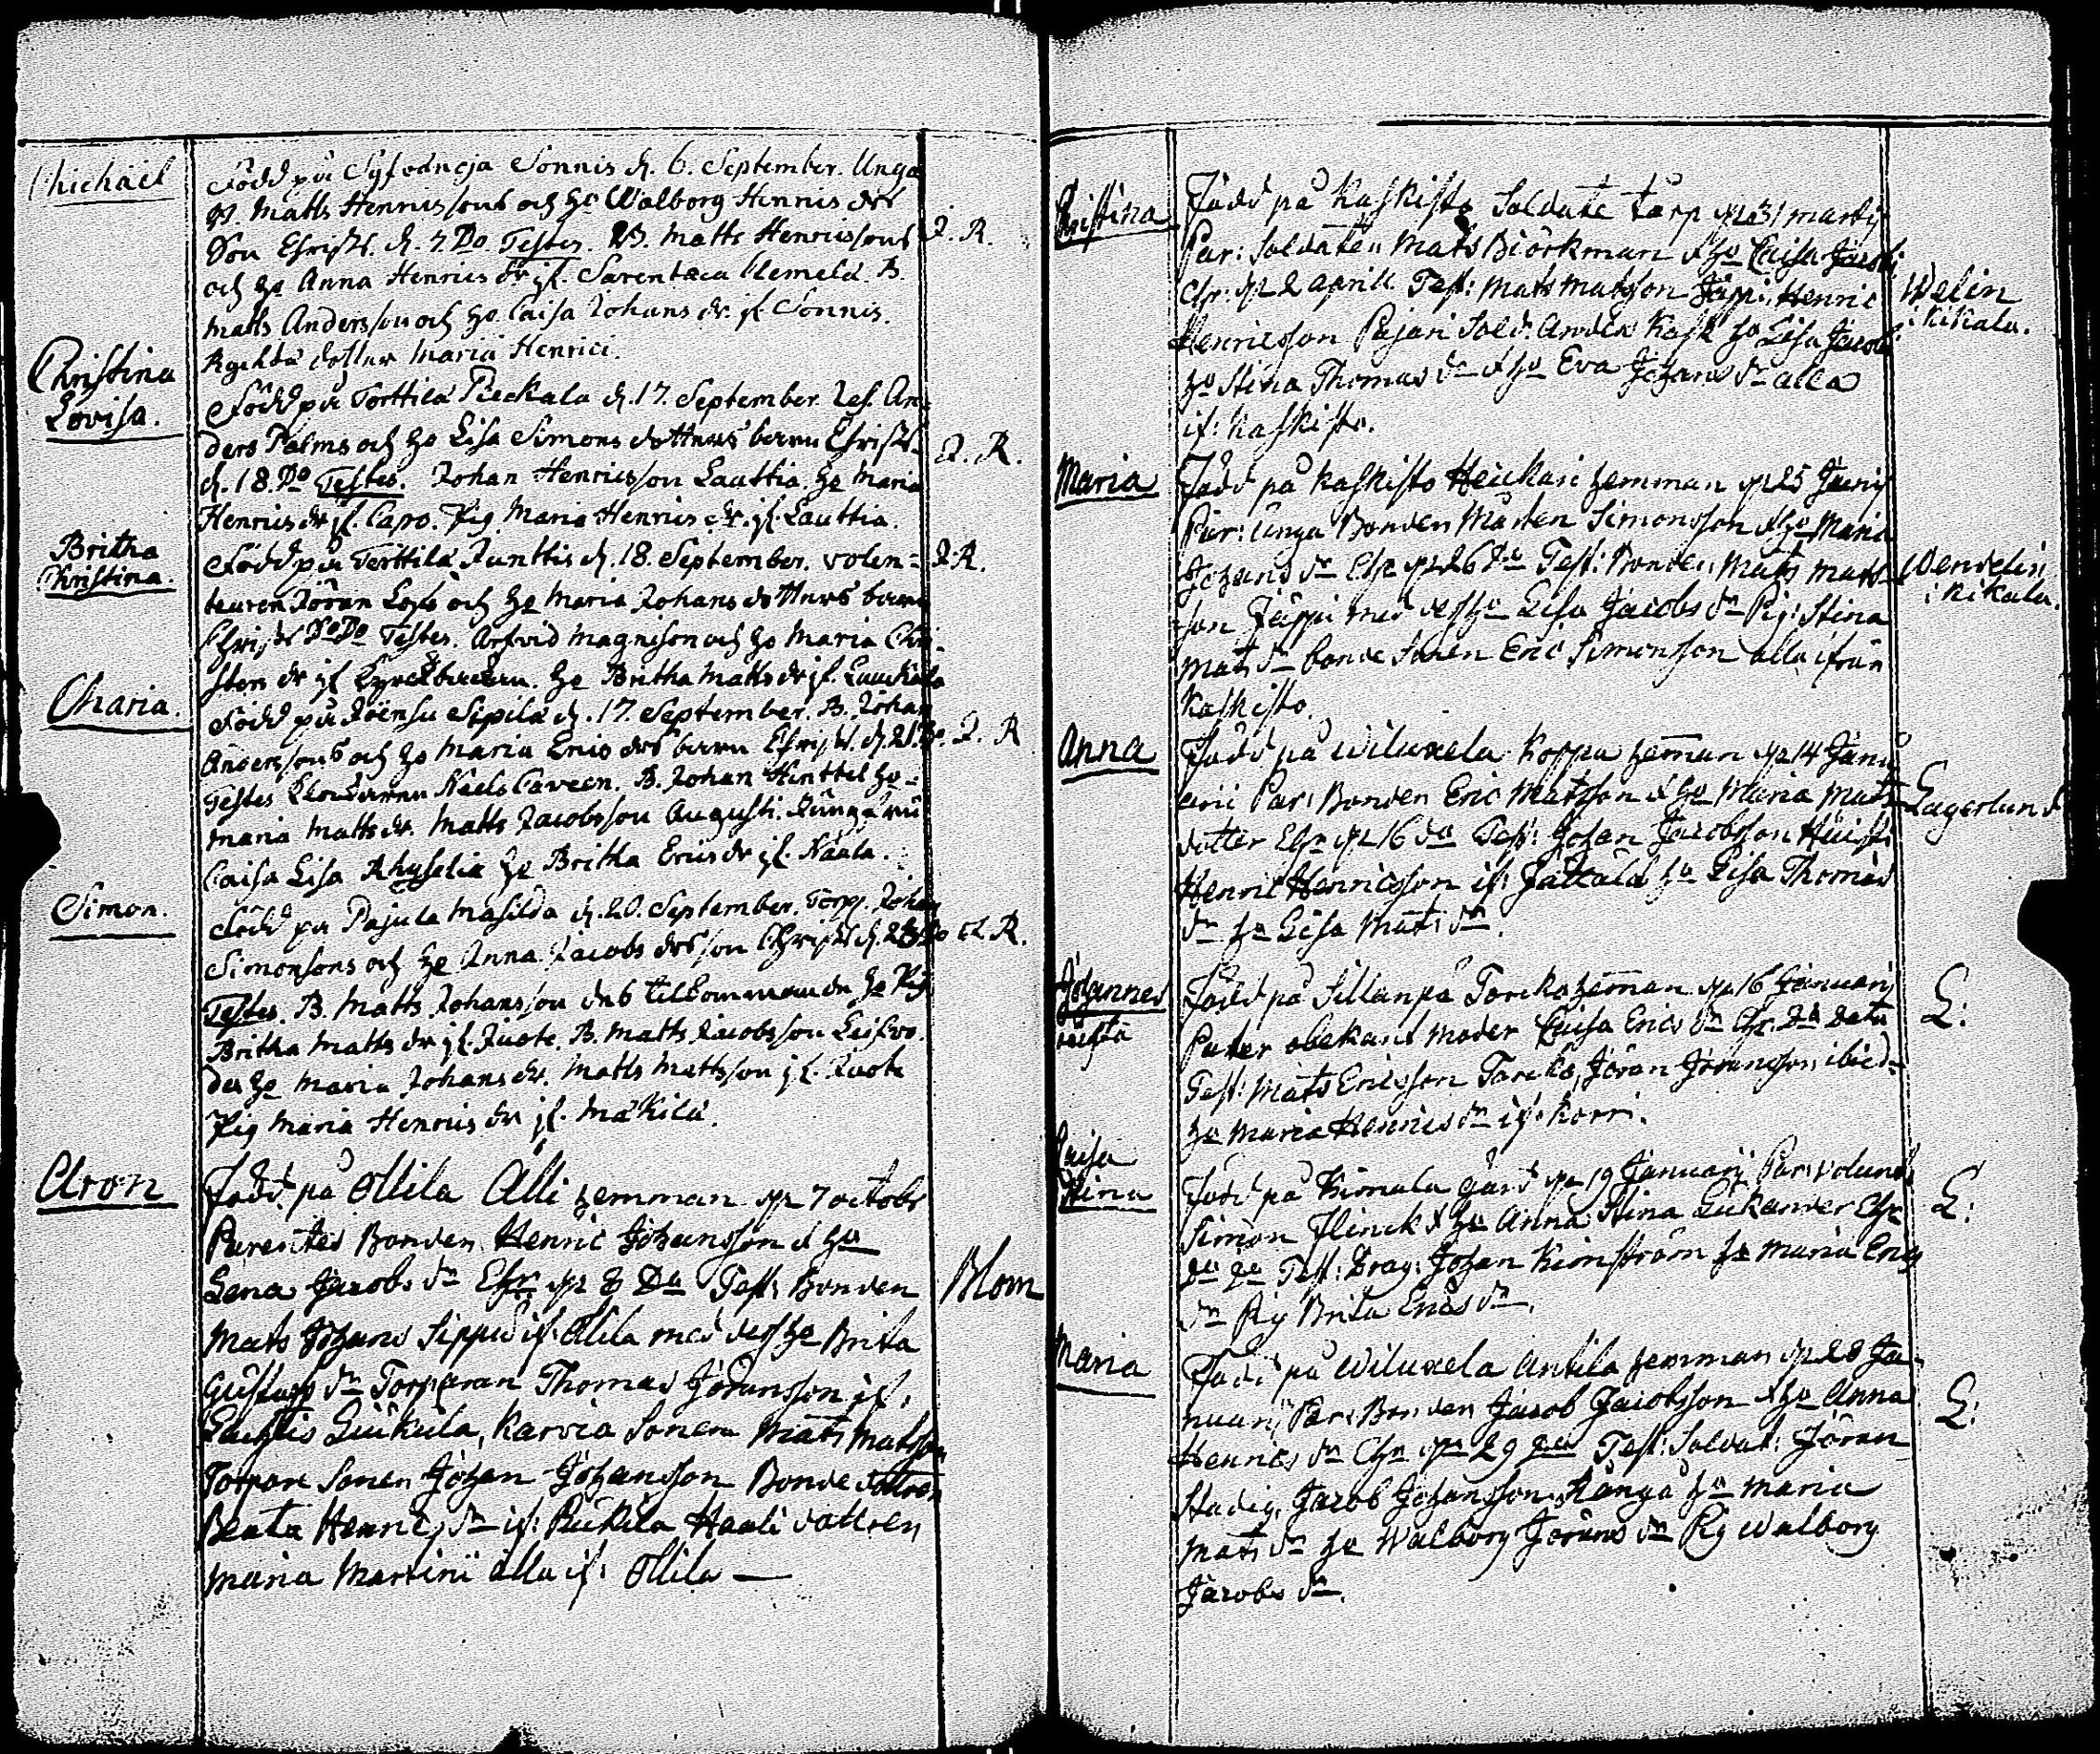 Michaël
Född på Syfvänoja Sonnis d. 6. September. Unga
B. Matts Henricssons och Ho Walborg Henrics drs
Son Christ. d. 7 Do Testes. B. Matts Henricssons
J. R.
och Ho Anna Henrics dr if. Sarentaca Uemelä. B.
Matts Andersson och Ho Caisa Johans dr. if Sonnis.
dotter Maria Henrici.
Christina
Lovisa.
Född på Torttila Pieckala d. 17. September. Anders
Palms och Ho Lisa Simons dotters barn Christ.
J. R.
d. 18. Do Testes. Johan Henricsson Lauttia. Ho Maria
Henrics dr if. Capo. Pig Maria Henrics dr. if. Lauttia.
Britha
Christina.
Född på Torttila Junttis d. 18. September. Volen-
J. R.
teuren Jöran och Ho Maria Johans dotters barn
Christ Do Testes. Arfvid Magnison och Ho Maria Chri
sters dr if Ho Britha Matts dr if.
Maria.
Född på Sipilä d. 17. September. B. Johan
Anderssons och Ho Maria Erics drs barn Christ. d. 21. Do.
J. R
Testes Niels Caveen. B. Johan Hinttil Ho-
Maria Matts dr. Matts Jacobsson Augusti. Jungfru
Caisa Lisa Rhyselia Ho Britha Erics dr if. Näälä.
Simon.
Född på Pajula Masilda d. 20. September. Torp. Johan
Simonsons och Ho Anna Jacobs drs son Christ d.
J. R.
Testes. B. Matts Johansson des tilkommande Ho Pig
Britha Matts dr if. Juote. B. Matts Jacobsson
Ho Maria Johans dr. Matts Mattsson if. Juote
Pig Maria Henrics dr if. Mäkilä.
Aron
Född på Ollila Alli hemman d. 7 octobr
Parentes Bonden Henric Johansson & Ho
Lena Jacobs dr Chr d. 8 Do Test: Bonden
Blom
Mats Johans Sippu if: Ollila med dess Ho Brita
Gustafs dr Torparan Thomas Jöransson if.
Karvia Sonen Mats Matsson
Torpare Sonen Johan Johansson Bonde dottren
Beata Henric dr if: Ruckila Haali dottren
Maria Martini alla if: Ollila —
Christina
Född på Kaskisto Soldate torp d. 31 martij
Par: Soldaten Mats Biörkman & Ho Caisa Jacobi
Chr: d. 2 aprill Test: Mats Matsson Jäppi, Henric
Welin
i Kikala.
Henricsson Pajari Sold: Anders Kask Ho Lisa Jacobs
Ho Stina Thomas dr & Ho Eva Johans dr alla
if: Kaskisto.
Maria
Född på Kaskisto Heickari hemman d. 25 Junij
Par: Unga Bonden Mårten Simonsson & Ho Maria
Johans dr Chr d. 26 Do Test: Bonden Mats Mats-
Wendelin
i Kikala.
son Jäppi med dess Ho Lisa Jacobs dr Pig: Stina
Mats dr bonde Sonen Eric Simonsson alla ifrån
Kaskisto.
Anna
Född på Wiluxela Koppa hemman d. 14 Janu
arii Par: Bonden Eric Matsson & Ho Maria Mats
Lagerlund
dotter Chr d. 16 do Test: Johan Jacobsson
Henric Henricsson if: Jättälä Ho Lisa Thomas
dr Ho Lisa Mats dr.
Johannes
oächta
Född på Sillanpä Torcko hemman d. 16 Januarij
L:
Pater obekant moder Caisa Erics dr Chr. Do Dato
Test: Mats Ericsson Torcko, Jöran Jöransson ibid-
Ho Maria Henrics dr if: Korri.
Caisa
Stina
Född på Kimala gård d. 19 Januarij Par: volunt
Simon Flinck & Ho Anna Stina Lickander Chr
L:
Test: Drag: Johan Kimström Ho Maria Erics
dr Pig Brita Erics dr.
Maria
Född på Wiluxela Antila hemman d. 28 Ja
nuarij Par: Bonden Jacob Jacobsson & Ho Anna
L:
Henrics dr Chr d. 29 Test: Soldat: Jöran
Stadig, Jacob Johansson Ho Maria
Mats dr Ho Walborg Jörans dr Pig Walborg
Jacobs dr.